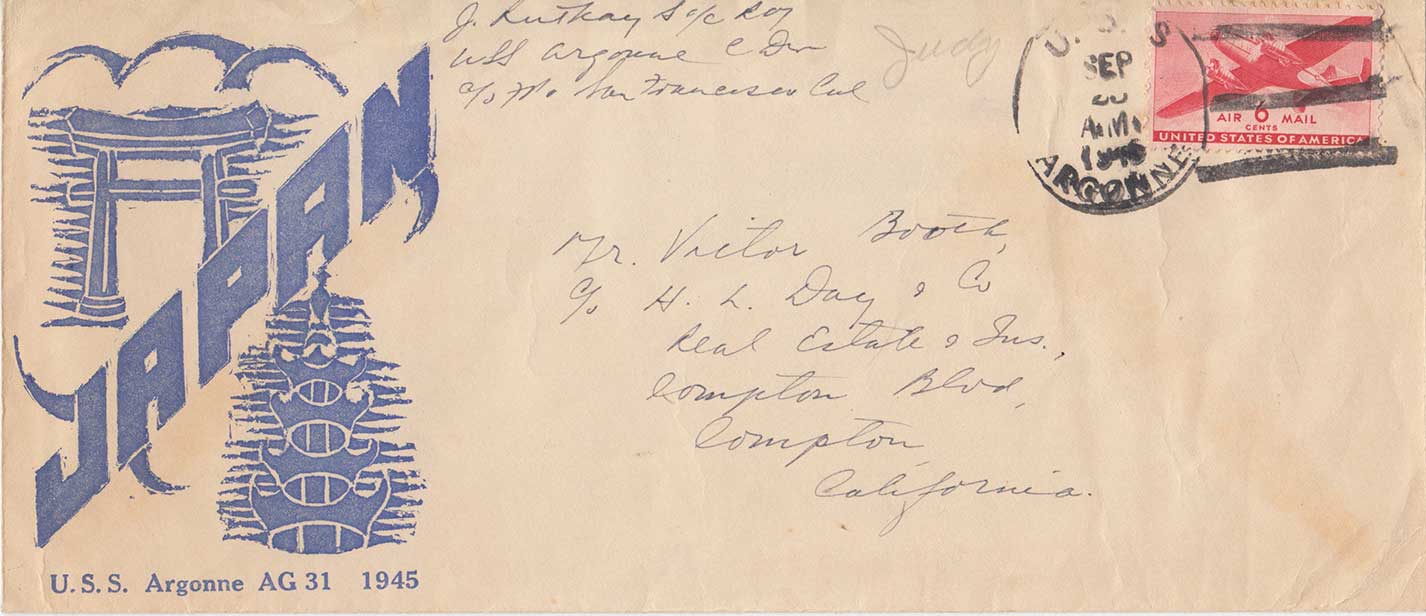 J. Ruthay S 1/c
USS Argonne C Div
c/o F.P.O. San Francisco Cal
Judy
U. S. S.
SEP
A.M.
1945
ARGONNE
AIR 6 MAIL
CENTS
UNITED STATES OF AMERICA
JAPAN
Mr. Victor Booth,
c/o H. L. Day & Co
Real Estate & Ins.,
Compton Blvd,
Compton
California.
U. S. S. Argonne AG 31 1945